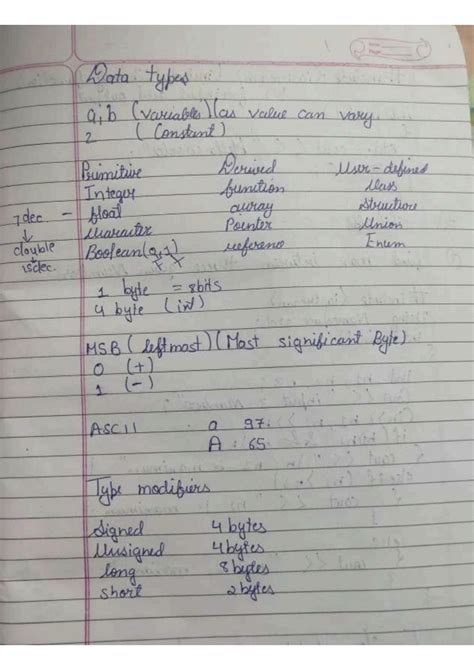 Data types
a,b (variables) (as value can vary
2 (Constant)
Primitive Derived User-defined
Integer function class
7 dec. - float array Structure
↓ character Pointer Union
double Boolean(0,1) reference Enum
↓
15dec.
1 byte = 8bits
4 byte (int)
MSB (leftmost) (Most significant Byte)
0 (+)
1 (-)
ASCII a 97.
A 65
Type modifiers
Signed 4 bytes
Unsigned 4 bytes
long 8 bytes
short 2 bytes